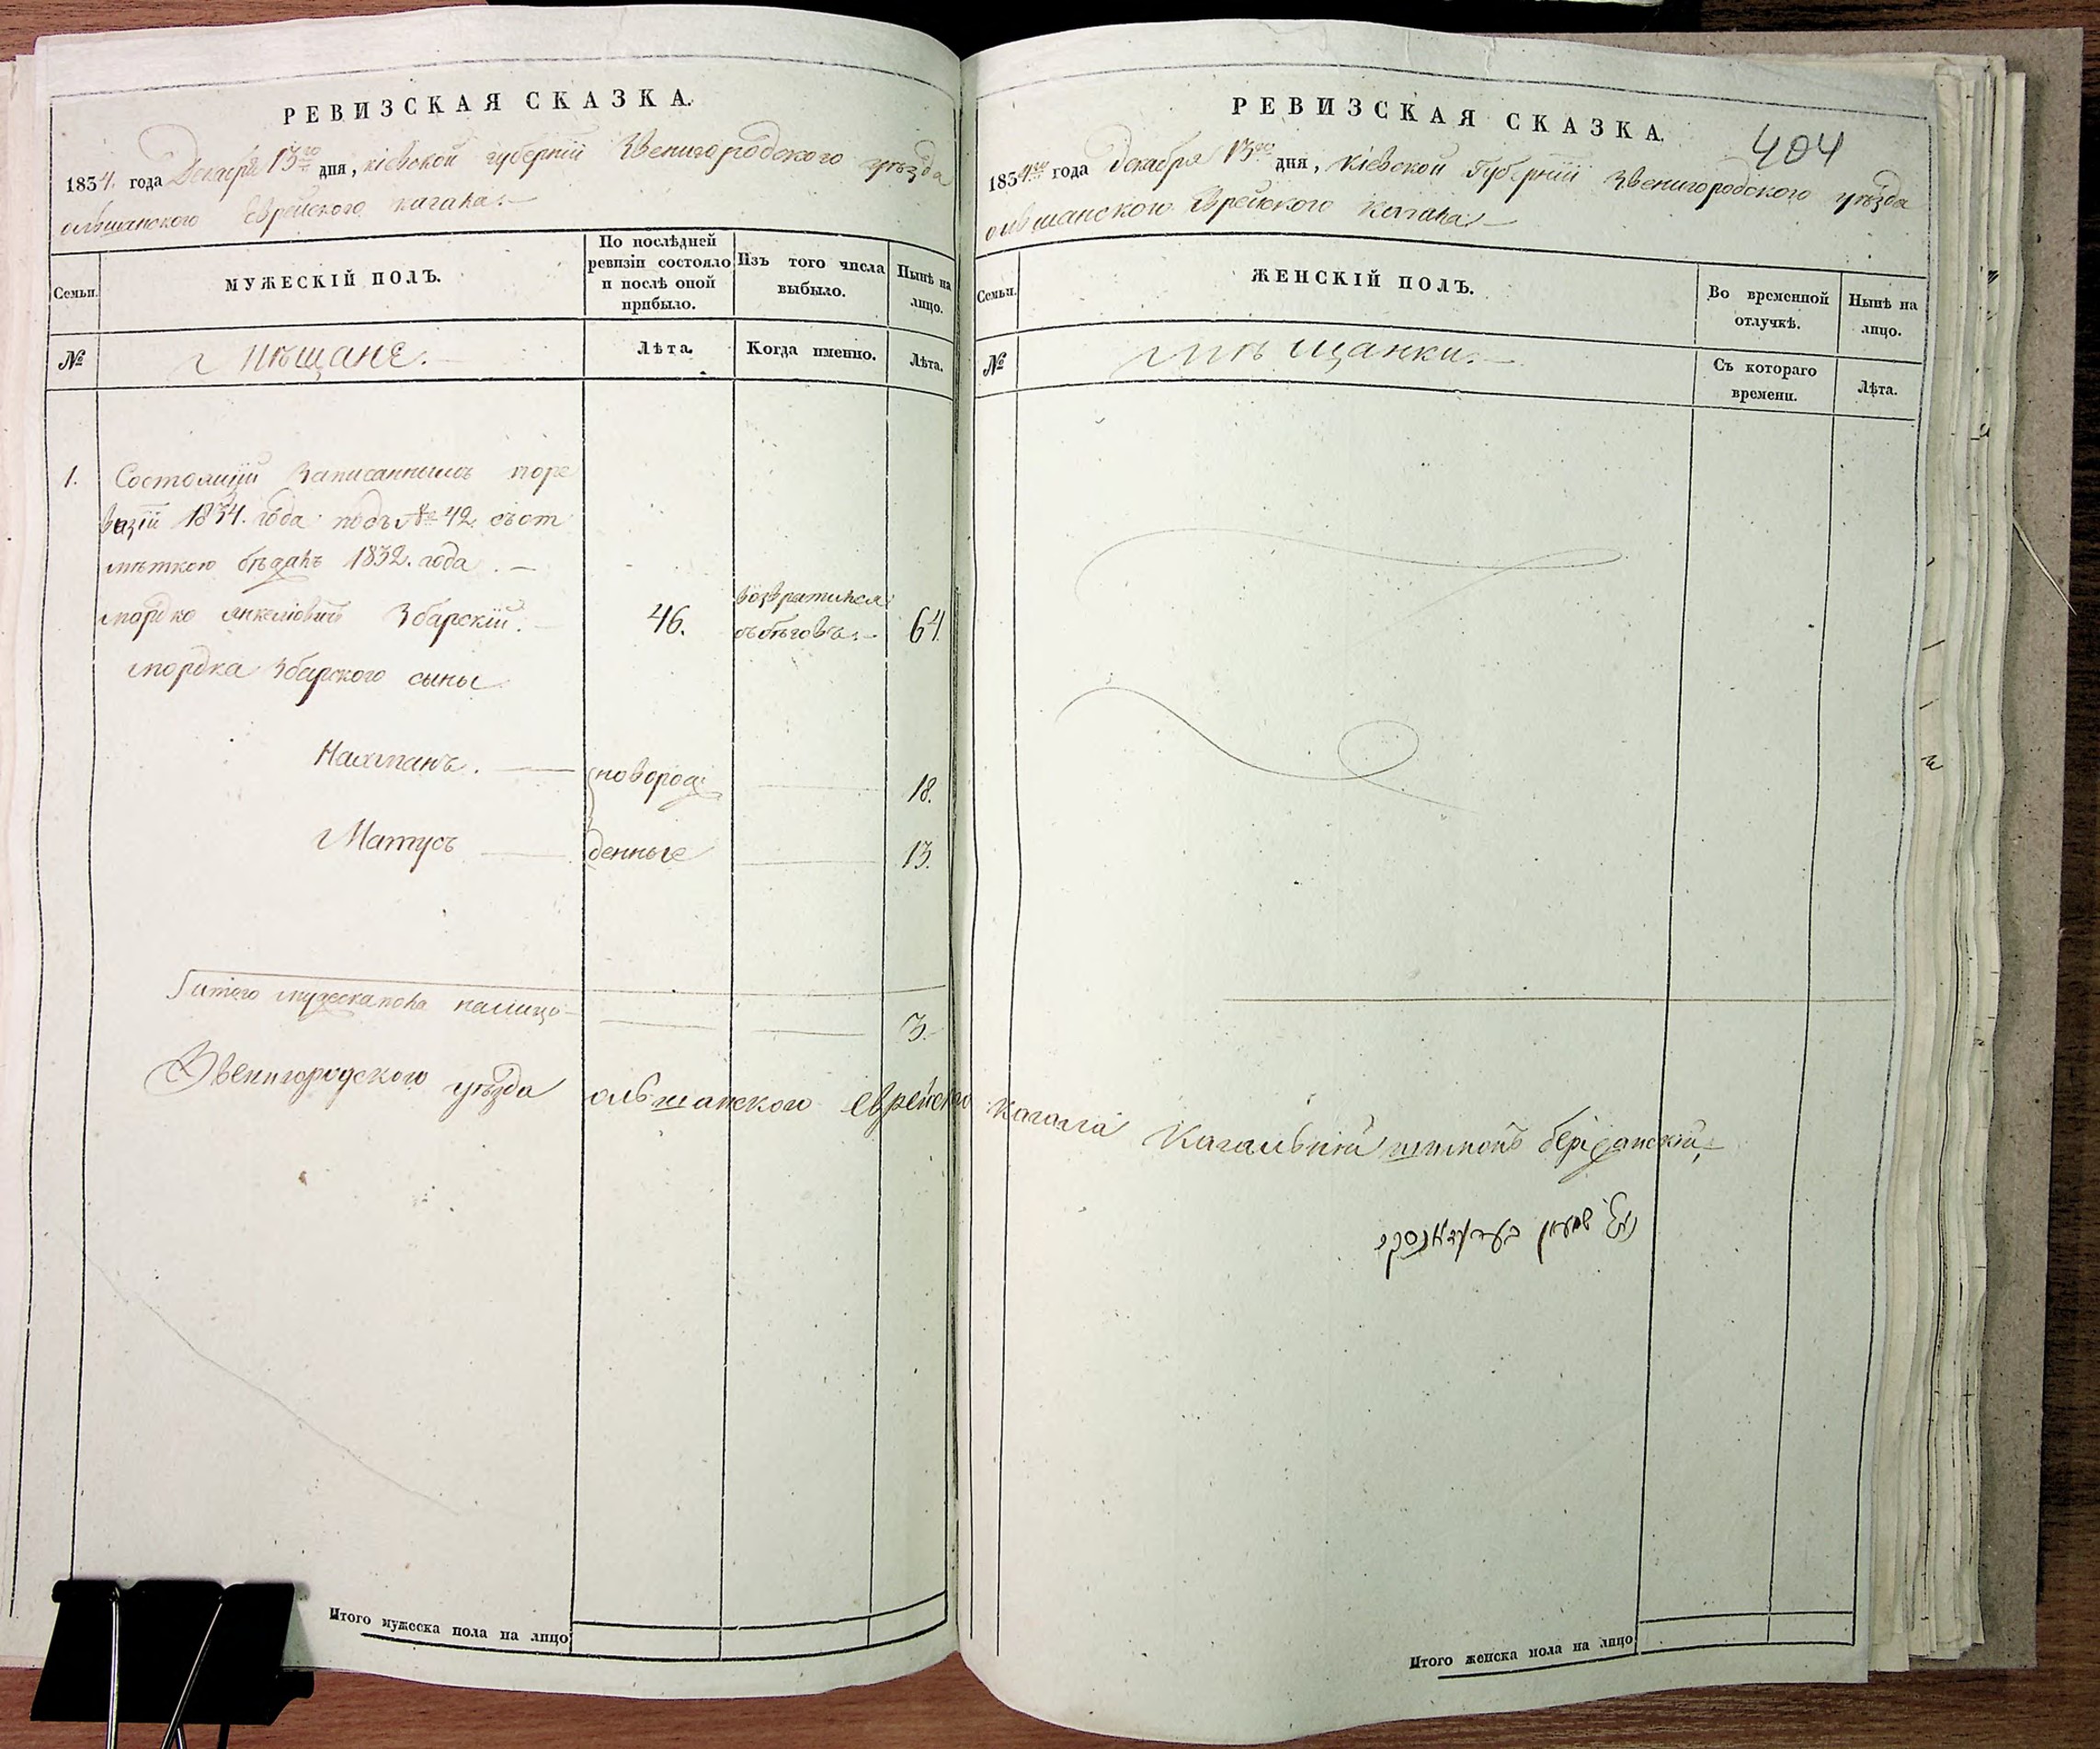 РЕВИЗСКАЯ СКАЗКА.
1854. года Декабря 13го дня, кіевской губерніи Звенигородского уѣзда
ольшанского Еврейского кагала.
Семьи.
МУЖЕСКІЙ ПОЛЪ.
По послѣдней ревизіи состояло и послѣ оной прибыло.
Изъ того числа выбыло.
Нынѣ на лицо.
№
Мѣщане.
Лѣта.
Когда именно.
Лѣта.
1. Состоящій записаннымъ поре
визіи 1834. года подъ № 42, съот
мѣткою бѣжалъ 1832. года.
мордко янкеліовичъ Збарскій. 46. возвратился
събѣговъ. 64.
мордка Збарского сыны
Нахманъ. новорож 18.
Матусъ денные 13.
Итого мужеска пола налицо 3.
Звенигородского уѣзда ольшанского еврейского
Итого мужеска пола на лицо
РЕВИЗСКАЯ СКАЗКА.
404
1854го года декабря 13го дня, Кіевской Губерніи Звенигородского уѣзда
ольшанского Еврейского Кагала
Семьи.
ЖЕНСКІЙ ПОЛЪ.
Во временной отлучкѣ.
Нынѣ на лицо.
№
мѣщанки.
Съ котораго времени.
Лѣта.
Кагала Кагальній шимонъ берідanскій
שמעון בערידאנסקי
Итого женска пола на лицо